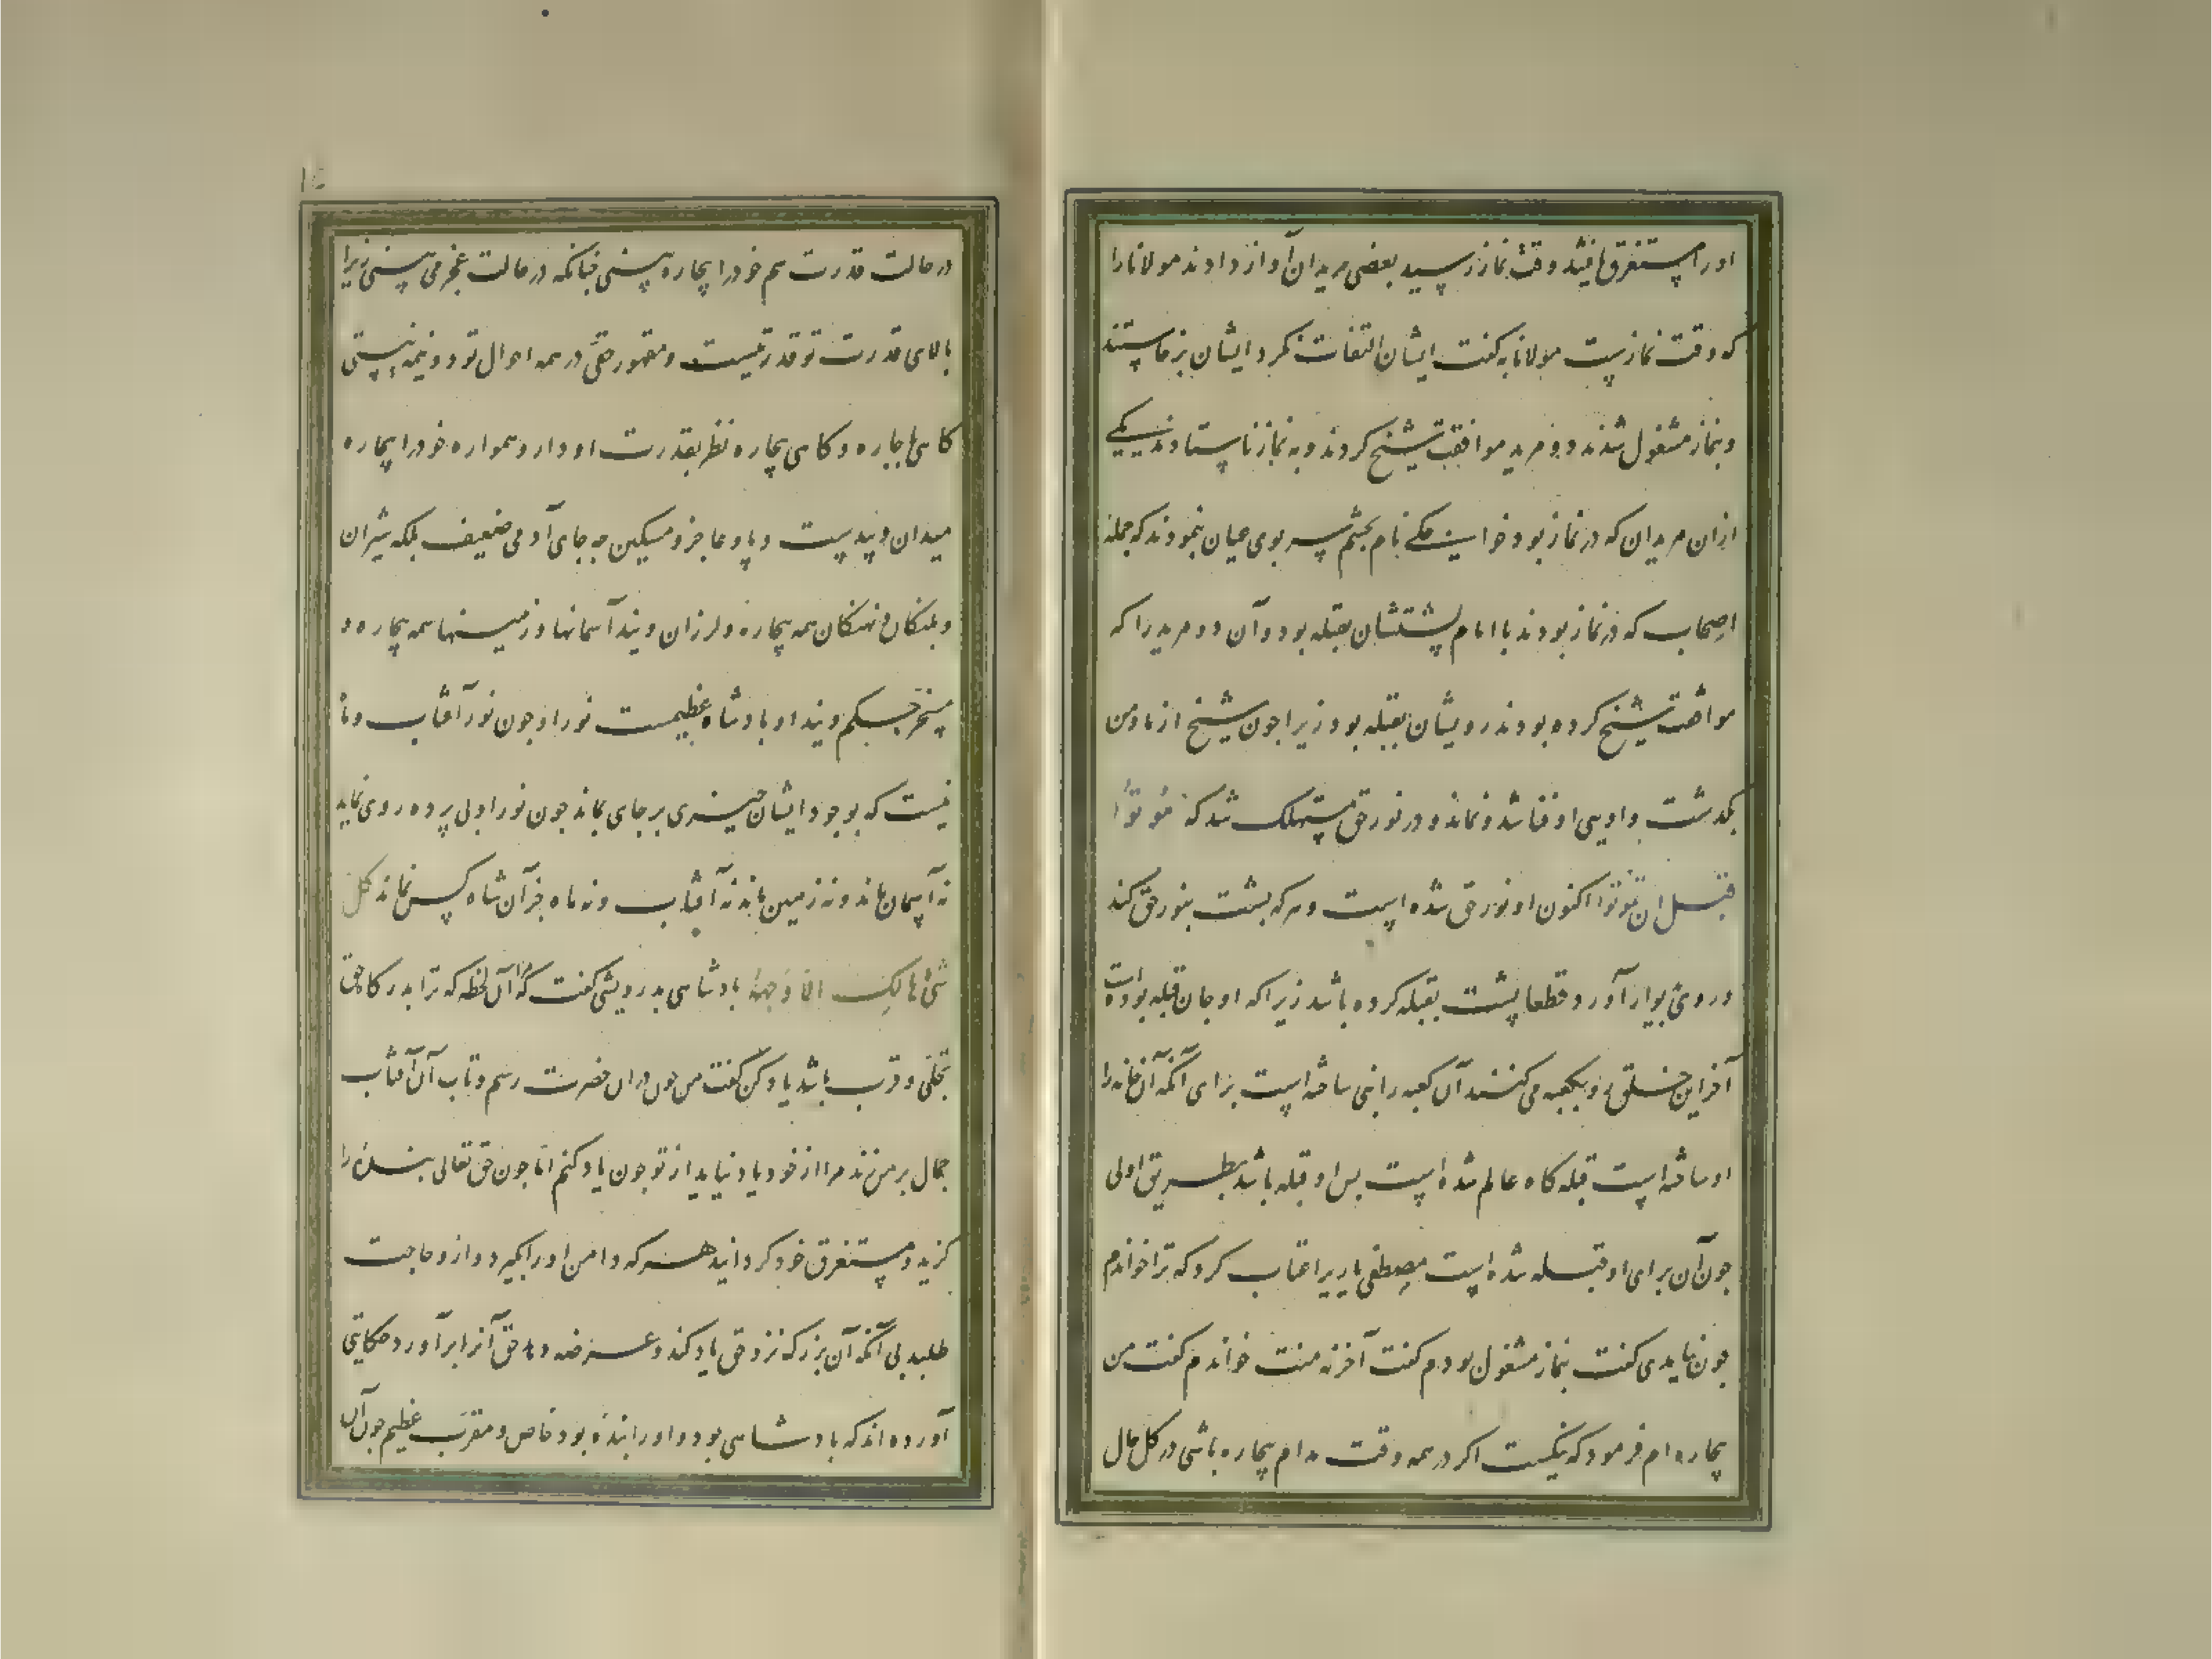 او را مستغرق یافتند وقت نماز رسید بعضی مریدان آواز دادند مولانا را
که وقت نمازست مولانا به گفت ایشان التفات نکرد ایشان برخاستند
و بنماز مشغول شدند دو مرید موافقت شیخ کردند و به نماز نایستادند یکی
ازان مریدان که در نماز بود خواجکی نام بچشم سر بوی عیان بنمودند که جمله
اصحاب که در نماز بودند با امام پشتشان بقبله بود و آن دو مرید را که
موافقت شیخ کرده بودند رویشان بقبله بود زیرا چون شیخ از ما و من
بگذشت و اویی او فنا شد و نماند و در نور حق مستهلک شد که مُوتُوا
قبل ان تموتوا اکنون او نور حق شده است و هر که پشت بنور حق کند
و روی بدیوار آورد قطعا پشت بقبله کرده باشد زیرا که او جان قبله بوده است
آخر این خلق رو بکعبه می کنند آن کعبه را نبی ساخته است برای آنکه آن خانه را
او ساخته است قبله کاه عالم شده است پس او قبله باشد بطریق اولی
چون آن برای او قبله شده است مصطفی یاریرا عتاب کرد که ترا خواندم
چون نیامدی گفت بنماز مشغول بودم گفت آخر نه منت خواندم گفت من
بیچاره ام فرمود که نیکست اگر در همه وقت مدام بیچاره باشی در کل حال
در حالت قدرت هم خود را بیچاره بینی چنانکه در حالت عجز می بینی زیرا
بالای قدرت تو قدرتیست و مقهور حقی در همه احوال تو دو نیمه نیستی
کاهی باچاره و کاهی بیچاره نظر بقدرت او دار و همواره خود را بیچاره
میدان و بی دست و پا و عاجز و مسکین چه جای آدمی ضعیف بلکه شیران
و پلنکان و نهنکان همه بیچاره و لرزان ویند آسمانها و زمینها همه بیچاره و
مسخر حکم ویند او پادشاه عظیمست نور او چون نور آفتاب و ماه
نیست که بوجود ایشان چیزی بر جای بماند چون نور او بی پرده روی نماید
نه آسمان ماند و نه زمین ماند نه آفتاب و نه ماه جز آن شاه کس نماند کل
شیء هالک الا وجهه پادشاهی بدرویشی گفت که آن لحظه که ترا بدرکاه حق
تجلی و قرب باشد یادم کن گفت من چون دران حضرت رسم و تاب آن آفتاب
جمال بر من زند مرا از خود یاد نیاید از تو چون یاد کنم اما چون حق تعالی بندهٔ را
کزید و مستغرق خود کردانید هر که دامن او را بگیرد و ازو حاجت
طلبد بی آنکه آن بزرک نزد حق یاد کند و عرضه دهد حق آنرا برآورد حکایتی
آورده اند که پادشاهی بود و او را بندهٔ بود خاص و مقرب عظیم چون آن